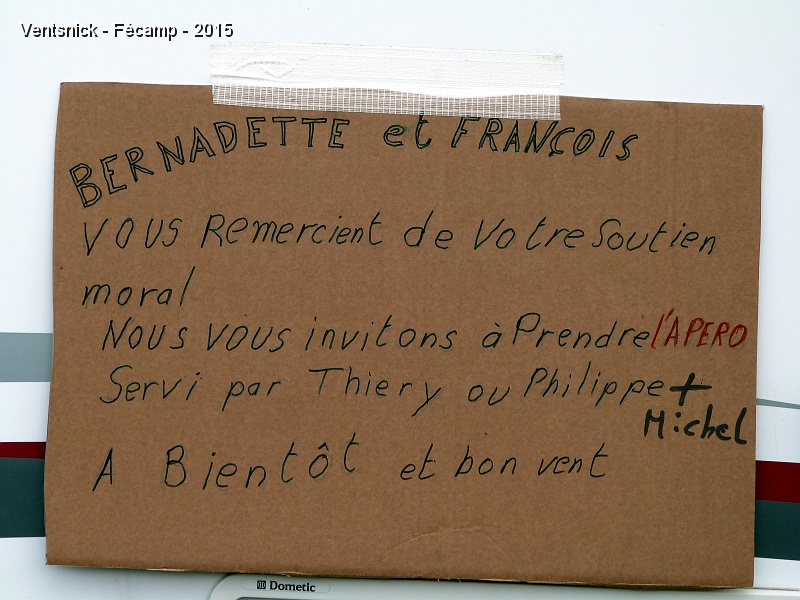 Ventsnick - Fécamp - 2015
BERNADETTE et FRANÇOIS
VOUS Remercient de Votre Soutien
moral
NOUS VOUS invitons à Prendre l'APERO
Servi par Thiery ou Philippe +
Michel
A Bientôt et bon vent
Dometic